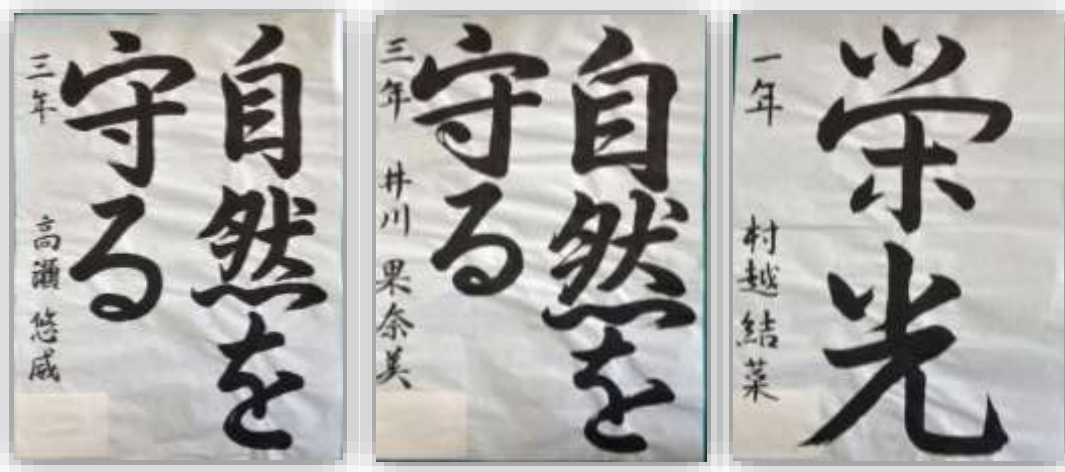 自然を
守る
三年 高瀬 悠威
自然を
守る
三年 井川 果奈美
栄光
一年 村越 結菜